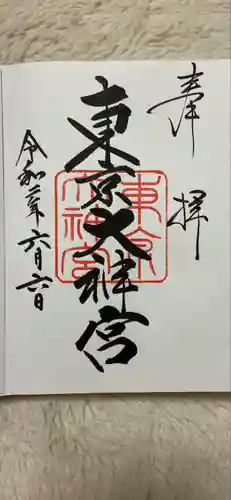 奉拝
東京大神宮
東京大神宮
令和二年六月六日